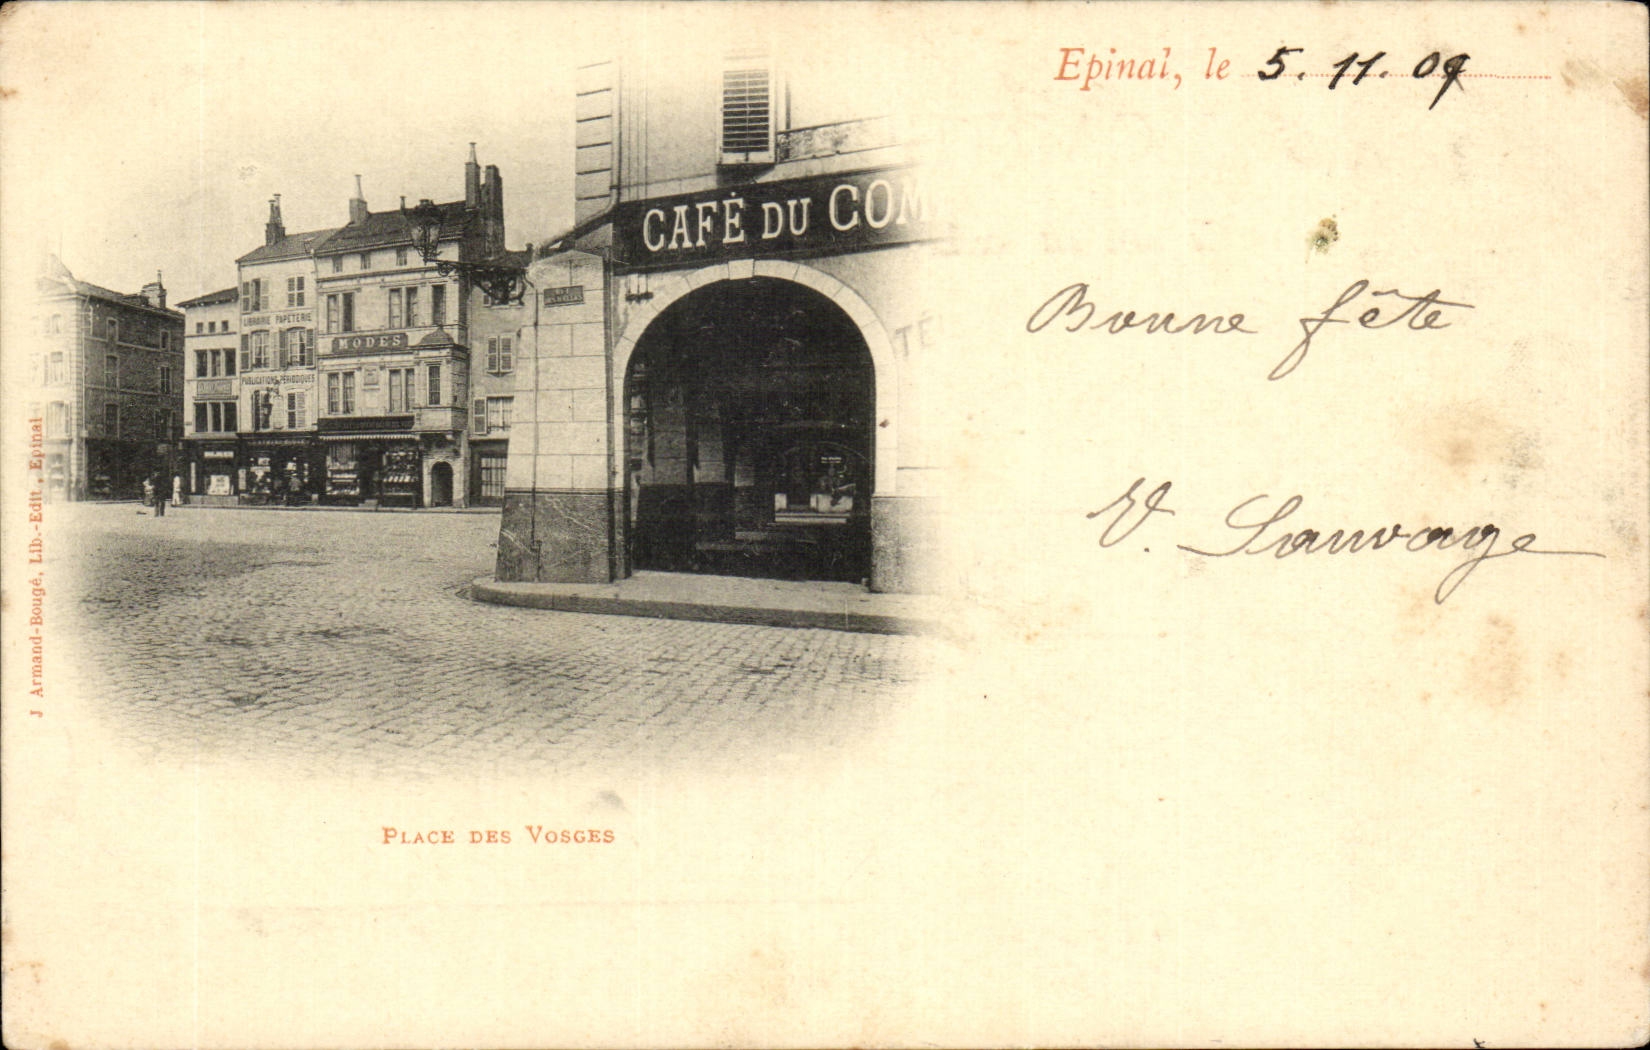 Epinal, le 5. 11. 09
CAFÉ DU COM
LIBRAIRIE PAPETERIE
MODES
PUBLICATIONS PÉRIODIQUES
TÉ
Bonne fête
V. Sauvage
J Armand-Bougé, Lib.-Edit, Epinal
PLACE DES VOSGES